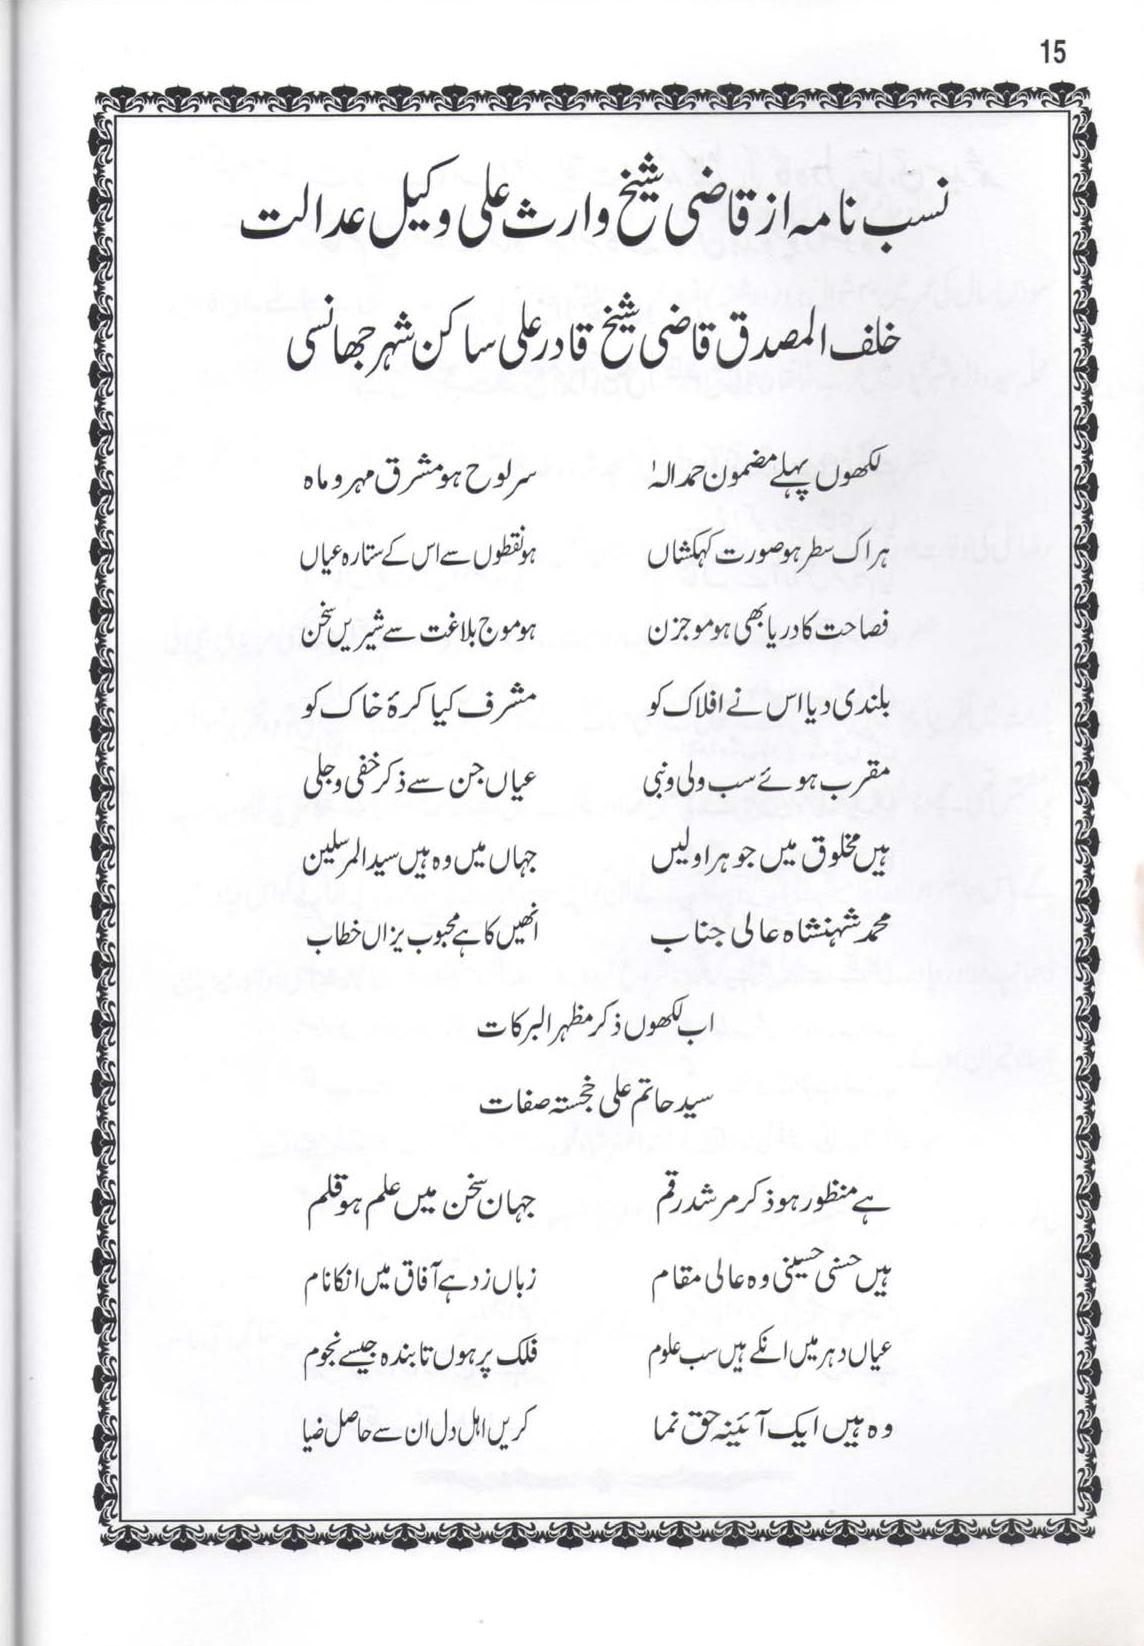 15
نسب نامہ از قاضی شیخ وارث علی وکیل عدالت
خلف المصدق قاضی شیخ قادر علی ساکن شہر جھانسی
لکھوں پہلے مضمون حمد الہٰ سر لوح ہو مشرق مہر و ماہ
ہر اک سطر ہو صورت کہکشاں ہو نقطوں سے اس کے ستارہ عیاں
فصاحت کا دریا بھی ہو موجزن ہو موج بلاغت سے شیریں سخن
بلندی دیا اس نے افلاک کو مشرف کیا کرۂ خاک کو
مقرب ہوئے سب ولی و نبی عیاں جن سے ذکر خفی و جلی
ہیں مخلوق میں جوہر اولیں جہاں میں وہ ہیں سید المرسلین
محمد شہنشاہ عالی جناب انھیں کا ہے محبوب یزاں خطاب
اب لکھوں ذکر مظہر البرکات
سید حاتم علی خجستہ صفات
ہے منظور ہو ذکر مرشد رقم جہان سخن میں علم ہو قلم
ہیں حسنی حسینی وہ عالی مقام زباں زد ہے آفاق میں انکا نام
عیاں دہر میں انکے ہیں سب علوم فلک پر ہوں تابندہ جیسے نجوم
وہ ہیں ایک آئینہ حق نما کریں اہل دل ان سے حاصل ضیا